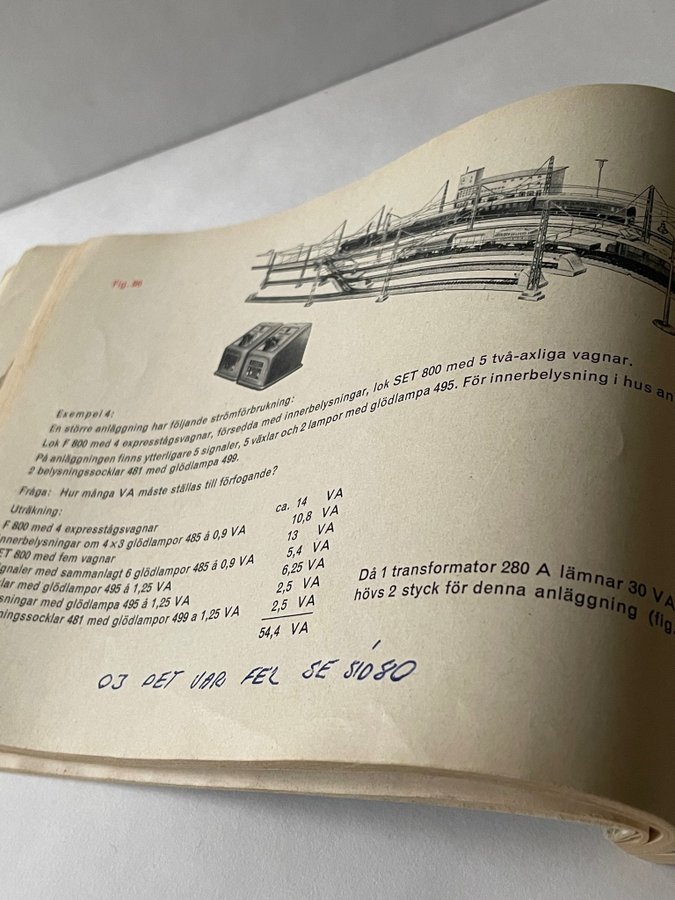 Fig. 86
Exempel 4:
En större anläggning har följande strömförbrukning:
Lok F 800 med 4 expresstågsvagnar, försedda med innerbelysningar, lok SET 800 med 5 två-axliga vagnar.
På anläggningen finns ytterligare 5 signaler, 5 växlar och 2 lampor med glödlampa 495. För innerbelysning i hus an
2 belysningssocklar 481 med glödlampa 499.
Fråga: Hur många VA måste ställas till förfogande?
Uträkning:
F 800 med 4 expresstågsvagnar ca. 14 VA
nnerbelysningar om 4×3 glödlampor 485 å 0,9 VA 10,8 VA
ET 800 med fem vagnar 13 VA
gnaler med sammanlagt 6 glödlampor 485 å 0,9 VA 5,4 VA
lar med glödlampor 495 å 1,25 VA 6,25 VA
sningar med glödlampa 495 å 1,25 VA 2,5 VA
ningssocklar 481 med glödlampor 499 a 1,25 VA 2,5 VA
54,4 VA
Då 1 transformator 280 A lämnar 30 VA
hövs 2 styck för denna anläggning (fig.
DET VAR FEL SE SID 80